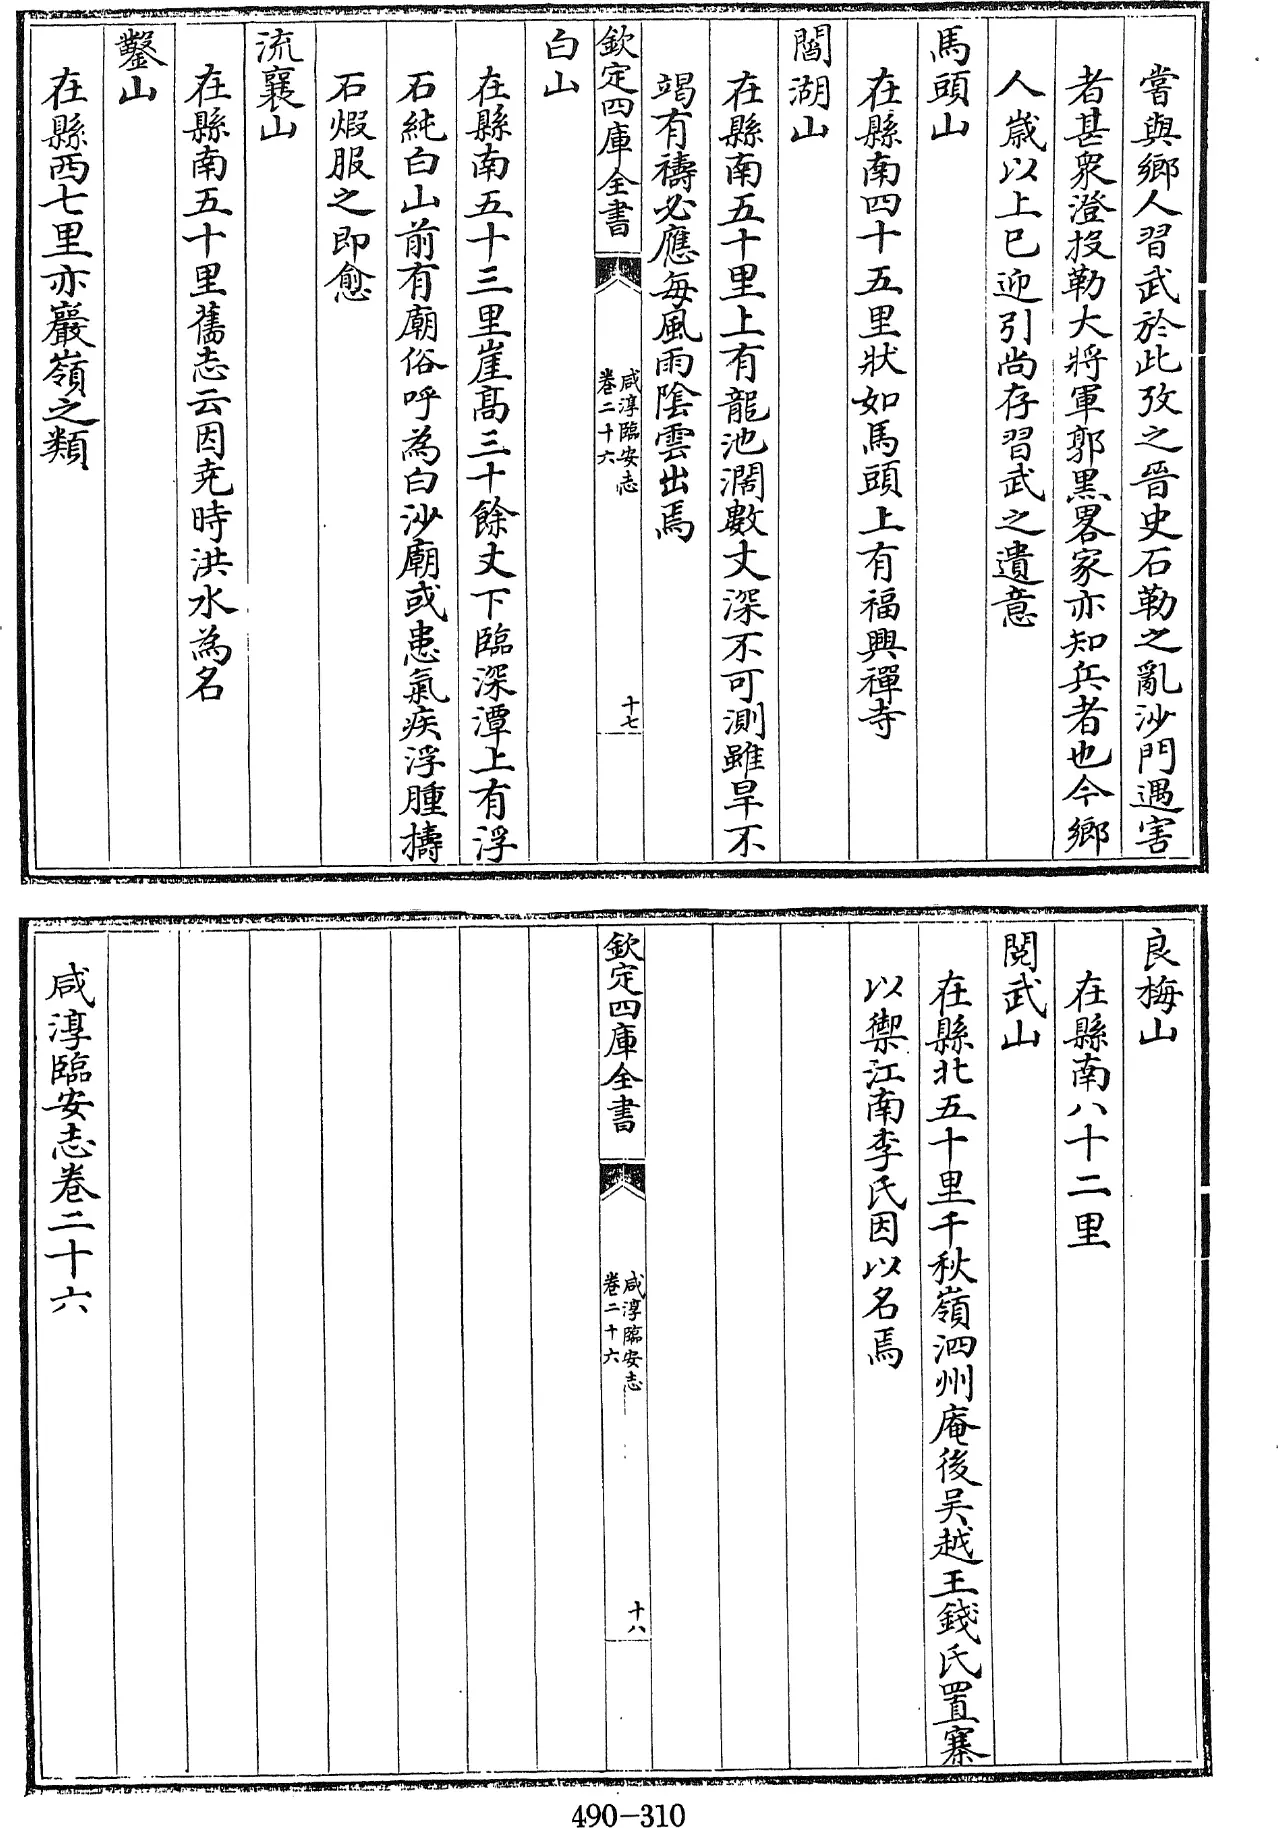 嘗與鄉人習武於此攷之晉史石勒之亂沙門遇害
者甚衆澄投勒大將軍郭黒畧家亦知兵者也今鄉
人歲以上巳迎引尚存習武之遺意
馬頭山
在縣南四十五里狀如馬頭上有福興禪寺
閻湖山
在縣南五十里上有龍池濶數丈深不可測雖旱不
竭有禱必應每風雨陰雲出焉
欽定四庫全書
咸淳臨安志
卷二十六
十七
白山
在縣南五十三里崖髙三十餘丈下臨深潭上有浮
石純白山前有廟俗呼為白沙廟或患氣疾浮腫擣
石煆服之即愈
流襄山
在縣南五十里舊志云因尭時洪水為名
鑿山
在縣西七里亦巖嶺之類
良梅山
在縣南八十二里
閱武山
在縣北五十里千秋嶺泗州庵後吴越王錢氏置寨
以禦江南李氏因以名焉
欽定四庫全書
咸淳臨安志
卷二十六
十八
咸淳臨安志卷二十六
490-310